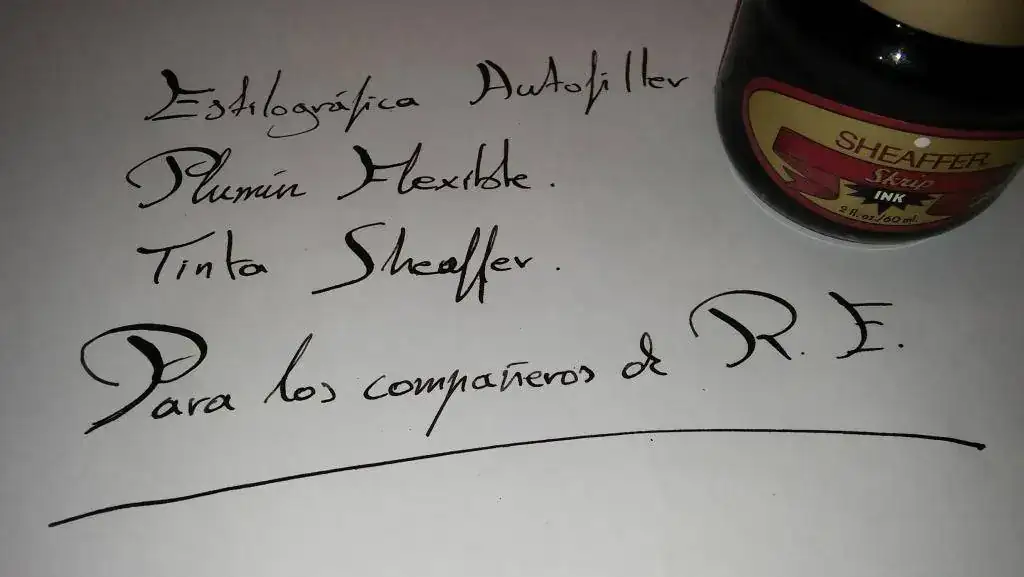 Estilográfica Autofiller
Plumín Flexible.
Tinta Sheaffer.
Para los compañeros de R. E.
SHEAFFER
Skrip
INK
2 fl. oz/60 ml.